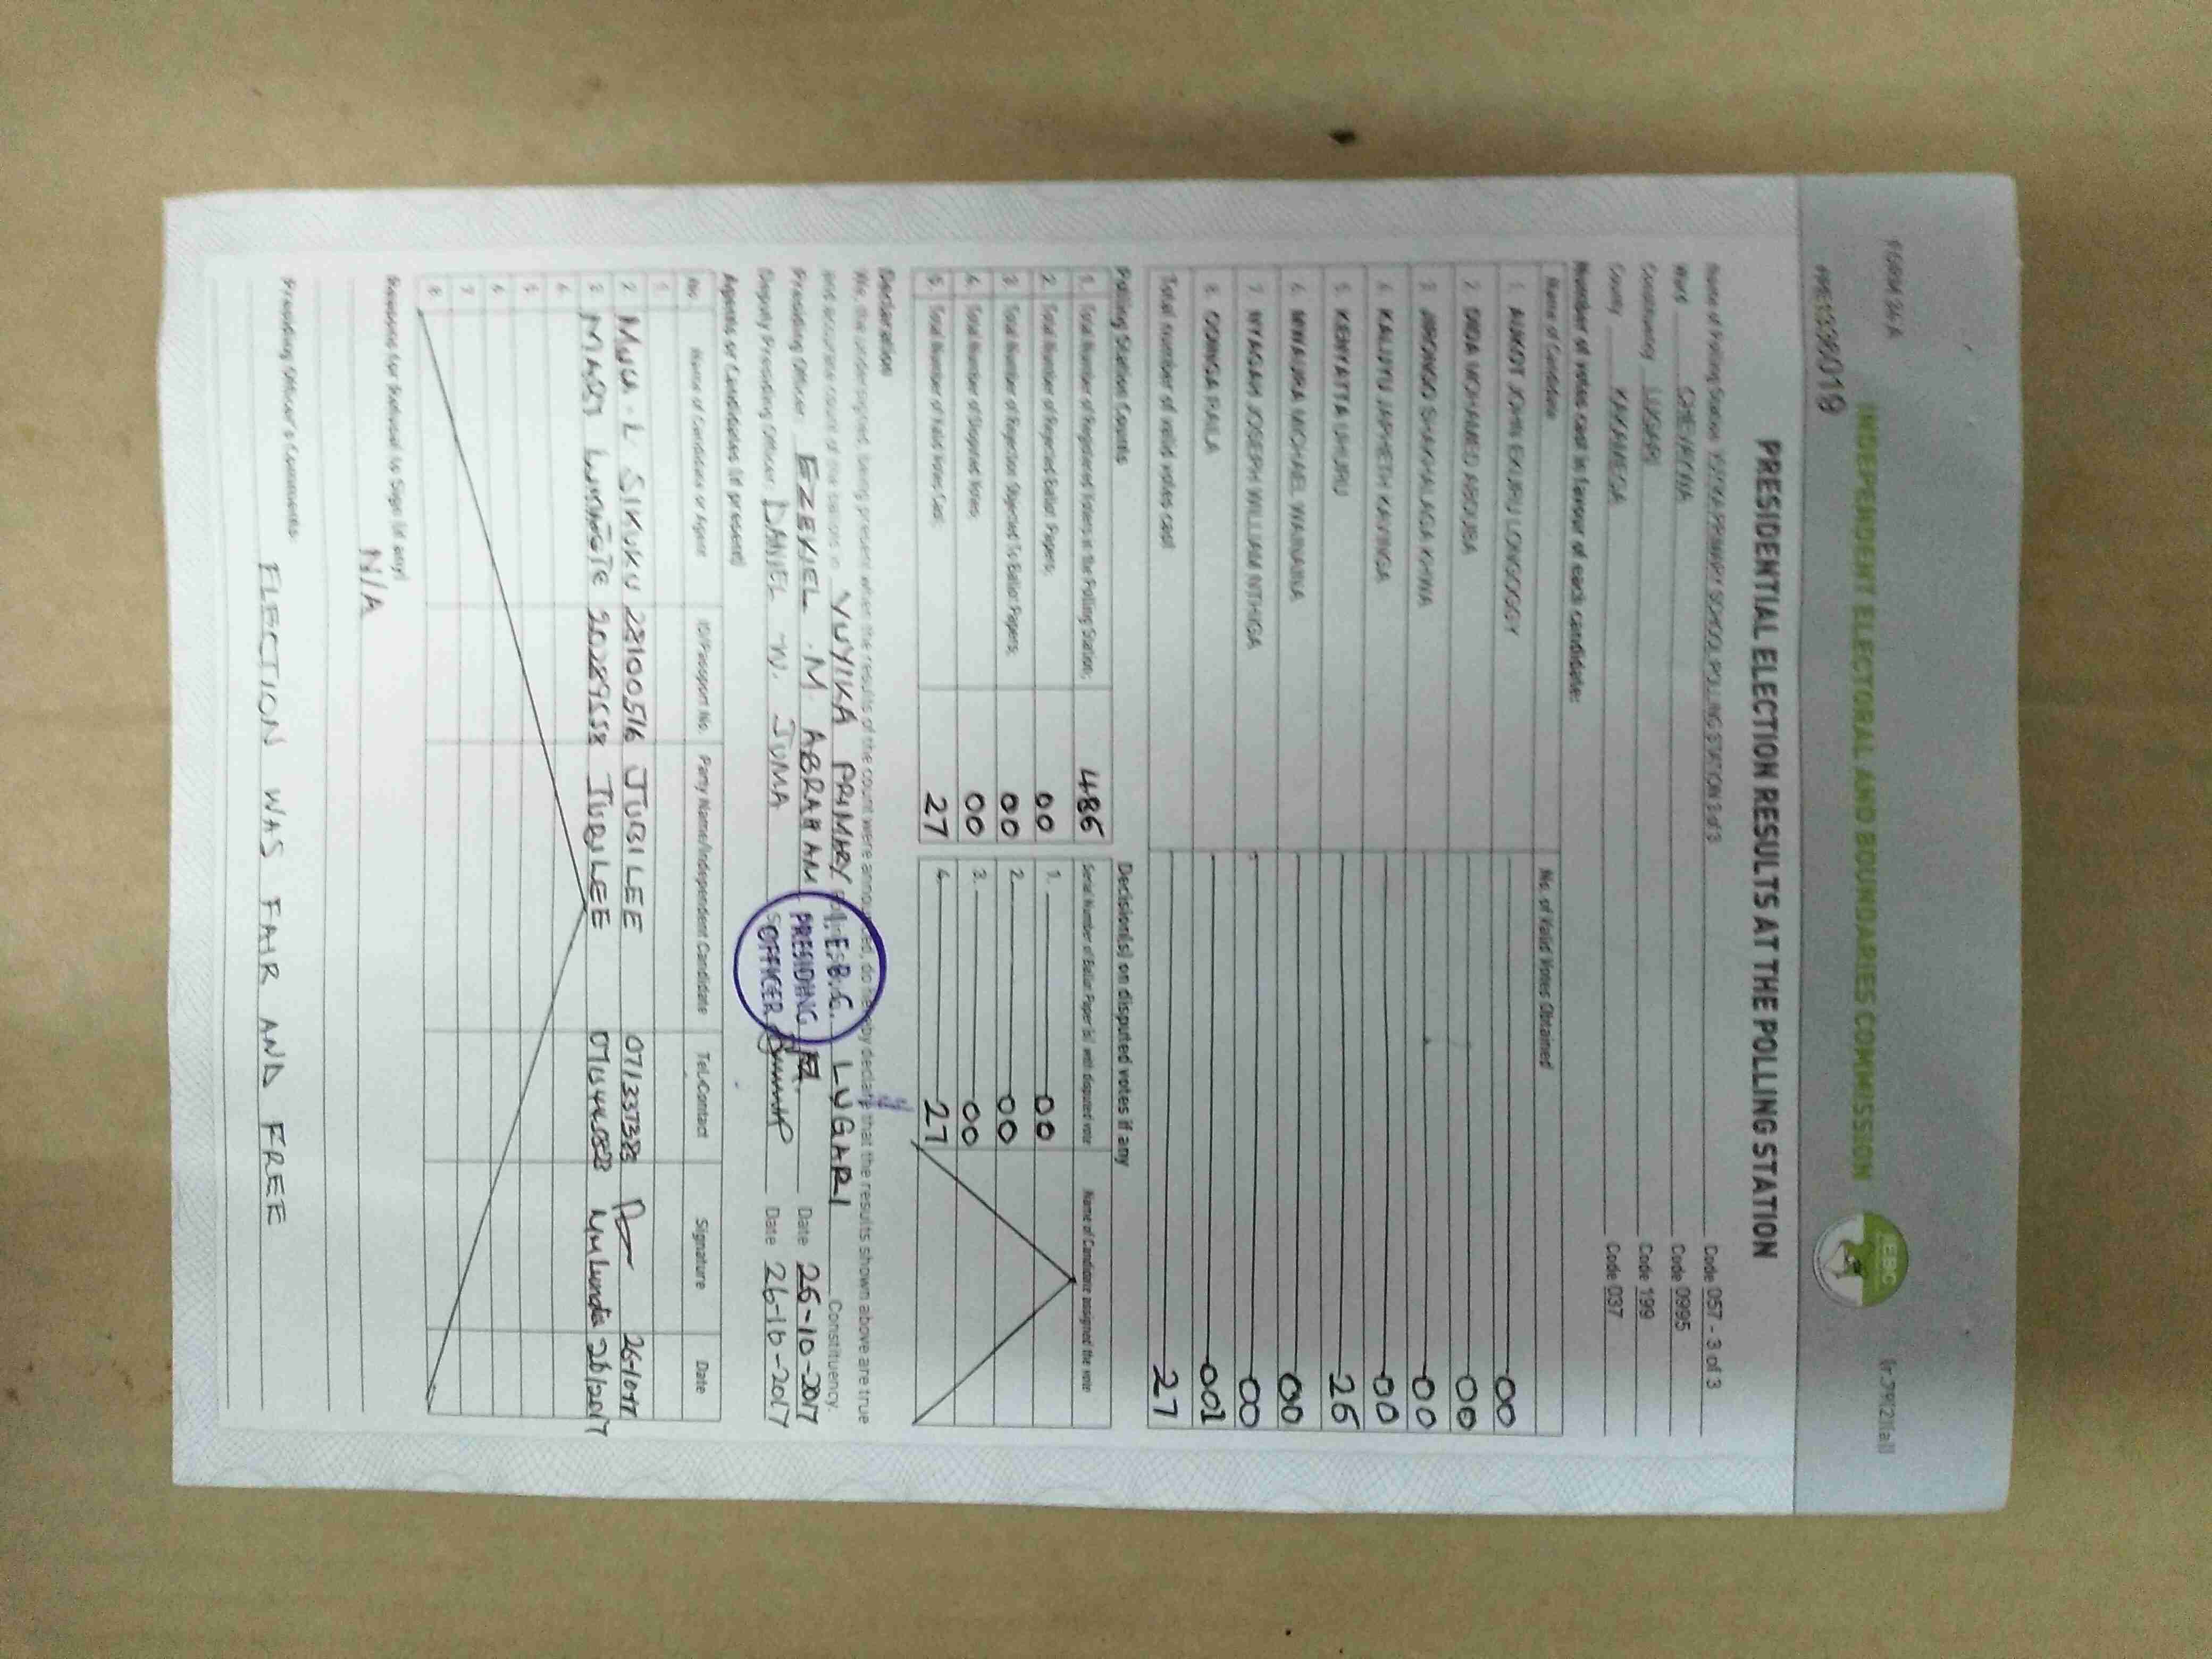 FORM 34A
(r.79(2)(a))
INDEPENDENT ELECTORAL AND BOUNDARIES COMMISSION
IEBC
PRESIDENTIAL ELECTION RESULTS AT THE POLLING STATION
Name of Polling Station YUYIKA PRIMARY SCHOOL POLLING STATION 3 of 3 Code 057 - 3 of 3
Ward CHEVAYWA Code 0995
Constituency LUGARI Code 199
County KAKAMEGA Code 037
Number of votes cast in favour of each candidate:
Name of Candidate No. of Valid Votes Obtained
1. AUKOT JOHN EKURU LONGOGGY 00
2. DIDA MOHAMED ABDUBA 00
3. JIRONGO SHAKHALAGA KHWA 00
4. KALUYU JAPHETH KAVINGA 00
5. KENYATTA UHURU 26
6. MWAURA MICHAEL WAINAINA 00
7. NYAGAH JOSEPH WILLIAM NTHIGA 00
8. ODINGA RAILA 001
Total number of valid votes cast 27
Polling Station Counts
1. Total Number of Registered Voters in the Polling Station; 486
2. Total Number of Rejected Ballot Papers; 00
3. Total Number of Rejection Objected To Ballot Papers; 00
4. Total Number of Disputed Votes; 00
5. Total Number of Valid Votes Cast; 27
Decision(s) on disputed votes if any
Serial Number of Ballot Paper (s) with disputed vote Name of Candidate assigned the vote
1. 00
2. 00
3. 00
4. 27
Declaration
We, the undersigned, being present when the results of the count were announced, do hereby declare that the results shown above are true
and accurate count of the ballots in YUYIKA PRIMARY LUGARI Constituency.
Presiding Officer EZEKIEL .M ABRAHAM Date 26-10-2017
Deputy Presiding Officer DANIEL W. JUMA Date 26-10-2017
I.E.B.C.
PRESIDING
OFFICER
Agents or Candidates (if present)
No. Name of Candidate or Agent ID/Passport No. Party Name/Independent Candidate Tel./Contact Signature Date
1
2 SIKUKU 28100516 JUBILEE
3 MARY JUBILEE
4
5
6
7
8
Reasons for Refusal to Sign (if any)
N/A
Presiding Officer's Comments:
ELECTION WAS FAIR AND FREE